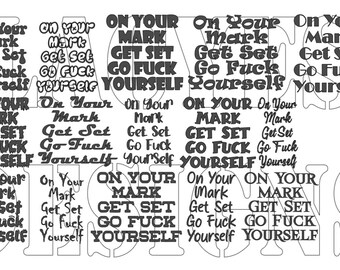 On Your
Mark
Get Set
Go Fuck
Yourself
ON YOUR
MARK
GET SET
GO FUCK
YOURSELF
On Your
Mark
Get Set
Go Fuck
Yourself
On Your
Mark
Get Set
Go Fuck
Yourself
On Your
Mark
Get Set
Go Fuck
Yourself
On Your
Mark
Get Set
Go Fuck
Yourself
ON YOUR
MARK
GET SET
GO FUCK
YOURSELF
On Your
Mark
Get Set
Go Fuck
Yourself
On Your
Mark
Get Set
Go Fuck
Yourself
ON YOUR
MARK
GET SET
GO FUCK
YOURSELF
On Your
Mark
Get Set
Go Fuck
Yourself
ON YOUR
MARK
GET SET
GO FUCK
YOURSELF